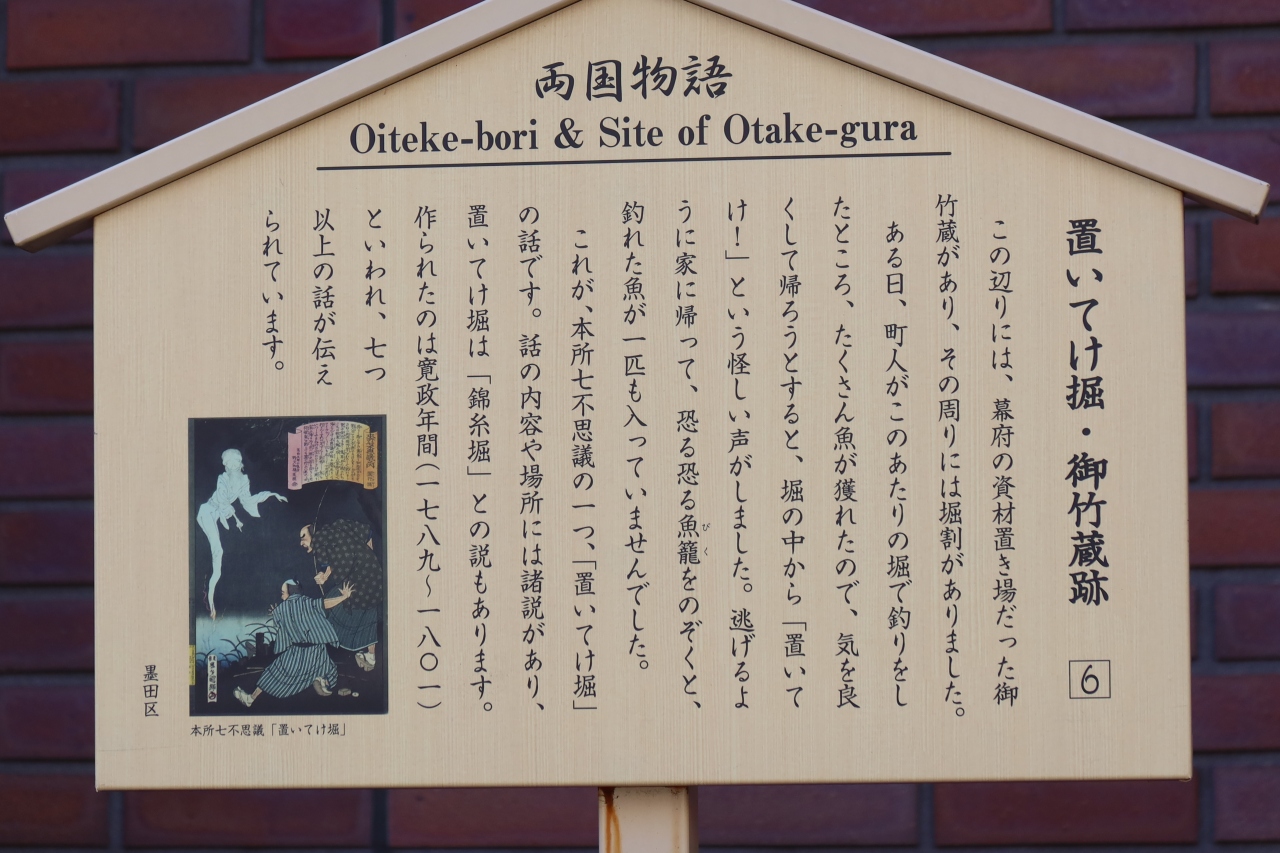 両国物語
Oiteke-bori & Site of Otake-gura
置いてけ堀・御竹蔵跡 6
この辺りには、幕府の資材置き場だった御
竹蔵があり、その周りには堀割がありました。
ある日、町人がこのあたりの堀で釣りをし
たところ、たくさん魚が獲れたので、気を良
くして帰ろうとすると、堀の中から「置いて
け！」という怪しい声がしました。逃げるよ
うに家に帰って、恐る恐る魚籠をのぞくと、
びく
釣れた魚が一匹も入っていませんでした。
これが、本所七不思議の一つ、「置いてけ堀」
の話です。話の内容や場所には諸説があり、
置いてけ堀は「錦糸堀」との説もあります。
作られたのは寛政年間（一七八九〜一八〇一）
といわれ、七つ
以上の話が伝え
られています。
本所七不思議「置いてけ堀」
墨田区